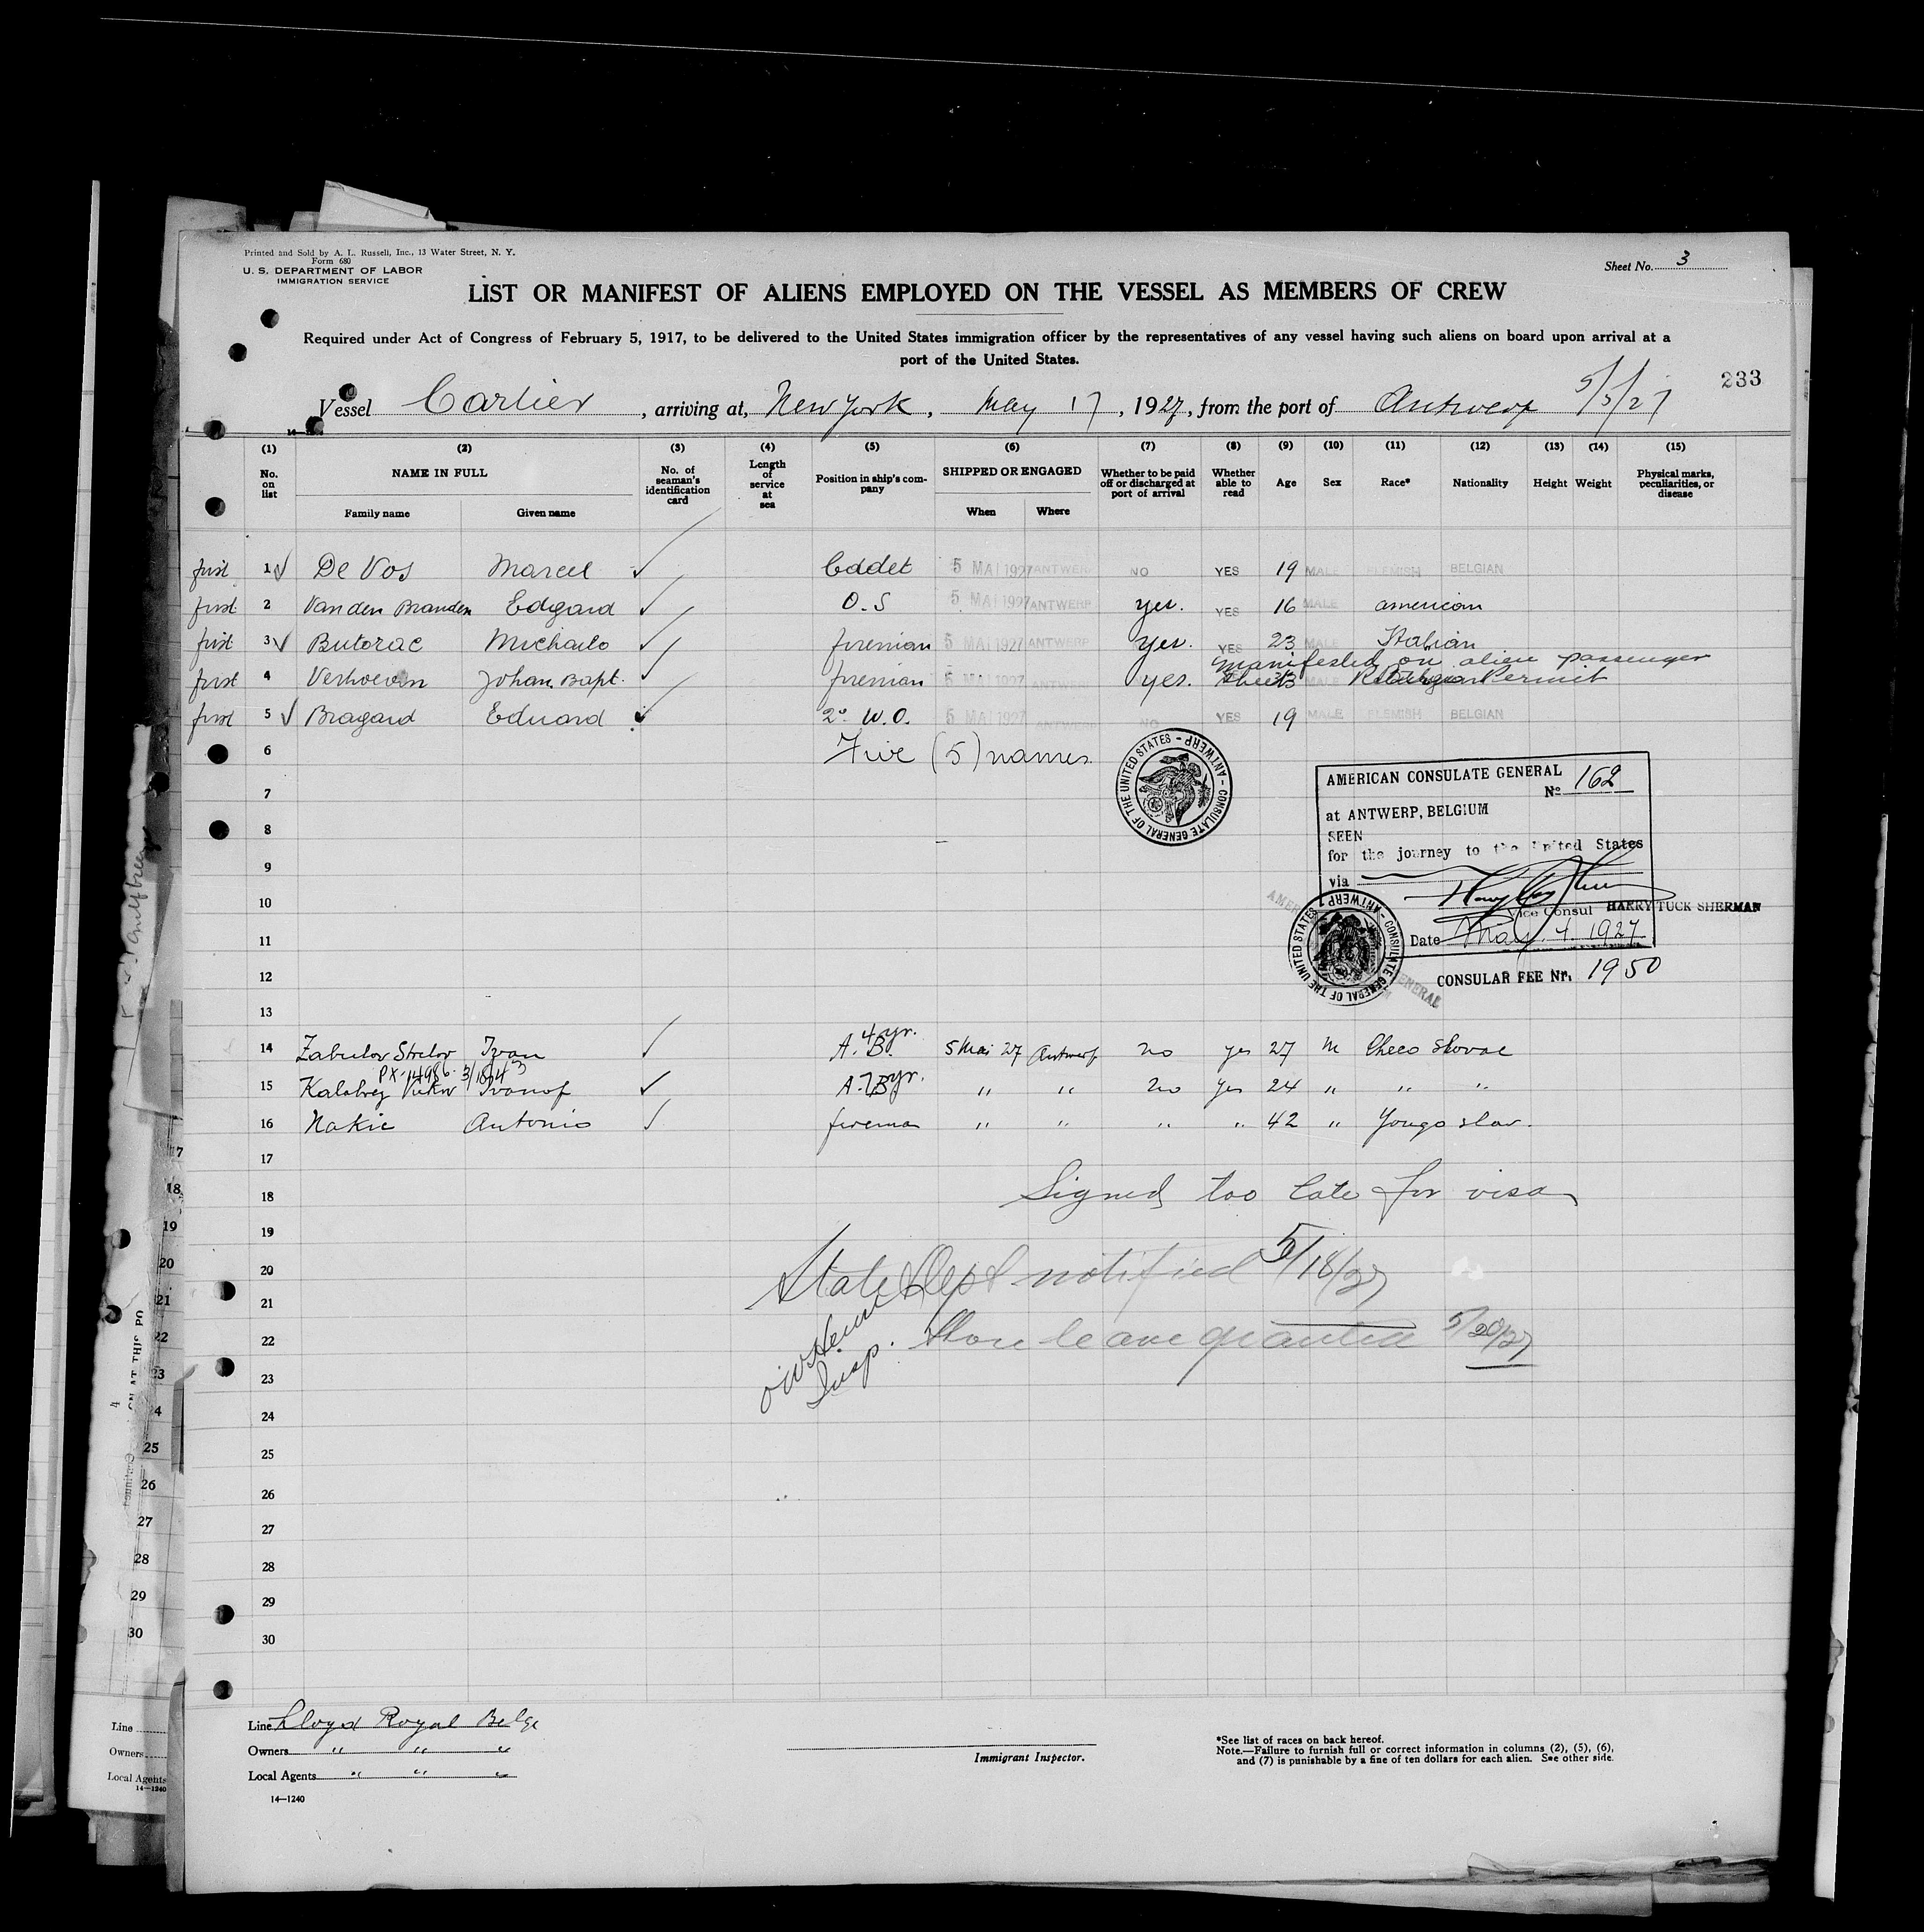 Printed and Sold by A. L. Russell, Inc., 13 Water Street, N. Y.
Form 680
U. S. DEPARTMENT OF LABOR
IMMIGRATION SERVICE
Sheet No. 3
LIST OR MANIFEST OF ALIENS EMPLOYED ON THE VESSEL AS MEMBERS OF CREW
Required under Act of Congress of February 5, 1917, to be delivered to the United States immigration officer by the representatives of any vessel having such aliens on board upon arrival at a
port of the United States.
233
Vessel Carlier, arriving at, New York, May 17, 1927, from the port of Antwerp 5/5/27
(1) (2) (3) (4) (5) (6) (7) (8) (9) (10) (11) (12) (13) (14) (15)
No. on list NAME IN FULL No. of seaman's identification card Length of service at sea Position in ship's company SHIPPED OR ENGAGED Whether to be paid off or discharged at port of arrival Whether able to read Age Sex Race* Nationality Height Weight Physical marks, peculiarities, or disease
Family name Given name When Where
first 1 De Vos Marcel Cadet 5 MAI 1927 ANTWERP NO YES 19 MALE FLEMISH BELGIAN
first 2 Van den Branden Edgard O.S 5 MAI 1927 ANTWERP yes. YES 16 MALE american
first 3 Butorac Michailo fireman 5 MAI 1927 ANTWERP yes. YES 23 MALE Italian
manifested on alien passenger
first 4 Verhoeven Johan Bapt. fireman 5 MAI 1927 ANTWERP yes. sheet MALE Permit
first 5 Bragard Eduard 2e W.O. 5 MAI 1927 ANTWERP NO YES 19 MALE FLEMISH BELGIAN
6 Five (5) names
7
8
9
10
11
12
13
CONSULATE GENERAL OF THE UNITED STATES - ANTWERP -
AMERICAN CONSULATE GENERAL
No 162
at ANTWERP, BELGIUM
SEEN
for the journey to the United States
via
Vice Consul HARRY TUCK SHERMAN
Date May. 4. 1927
CONSULAR FEE Nr. 1950
CONSULATE GENERAL OF THE UNITED STATES - ANTWERP -
14 Zabulov Strelov Ivan A.B. 4 yr. 5 Mai 27 Antwerp no yes 27 M Checo Slovac
PX-14986
15 Kalabrez Victor Ivanof A.B. 7 yr. " " No Yes 24 " " "
16 Nakic Antonio fireman " " " " 42 " Yougo slav.
17
18 Signed too late for visa
19
20 State Dept notified 5/18/27
21
22 Insp. Shore leave granted 5/20/27
23
24
25
26
27
28
29
30
Line Lloyd Royal Belge
Owners " " "
Local Agents " " "
14—1240
Immigrant Inspector.
*See list of races on back hereof.
Note.—Failure to furnish full or correct information in columns (2), (5), (6),
and (7) is punishable by a fine of ten dollars for each alien. See other side.
17
18
19
20
21
22
23
24
25
26
27
28
29
30
Line
Owners
Local Agents
14—1240